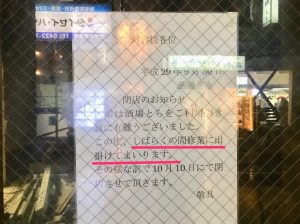 TEL 0422-
各位
平成29年9月30日
閉店のお知らせ
は酒場とらをご利用頂き
に有難うございました。
この度、しばらくの間修業に出
掛けてまいります。
その様な訳で10月10日にて閉
店させて頂きます。
敬具